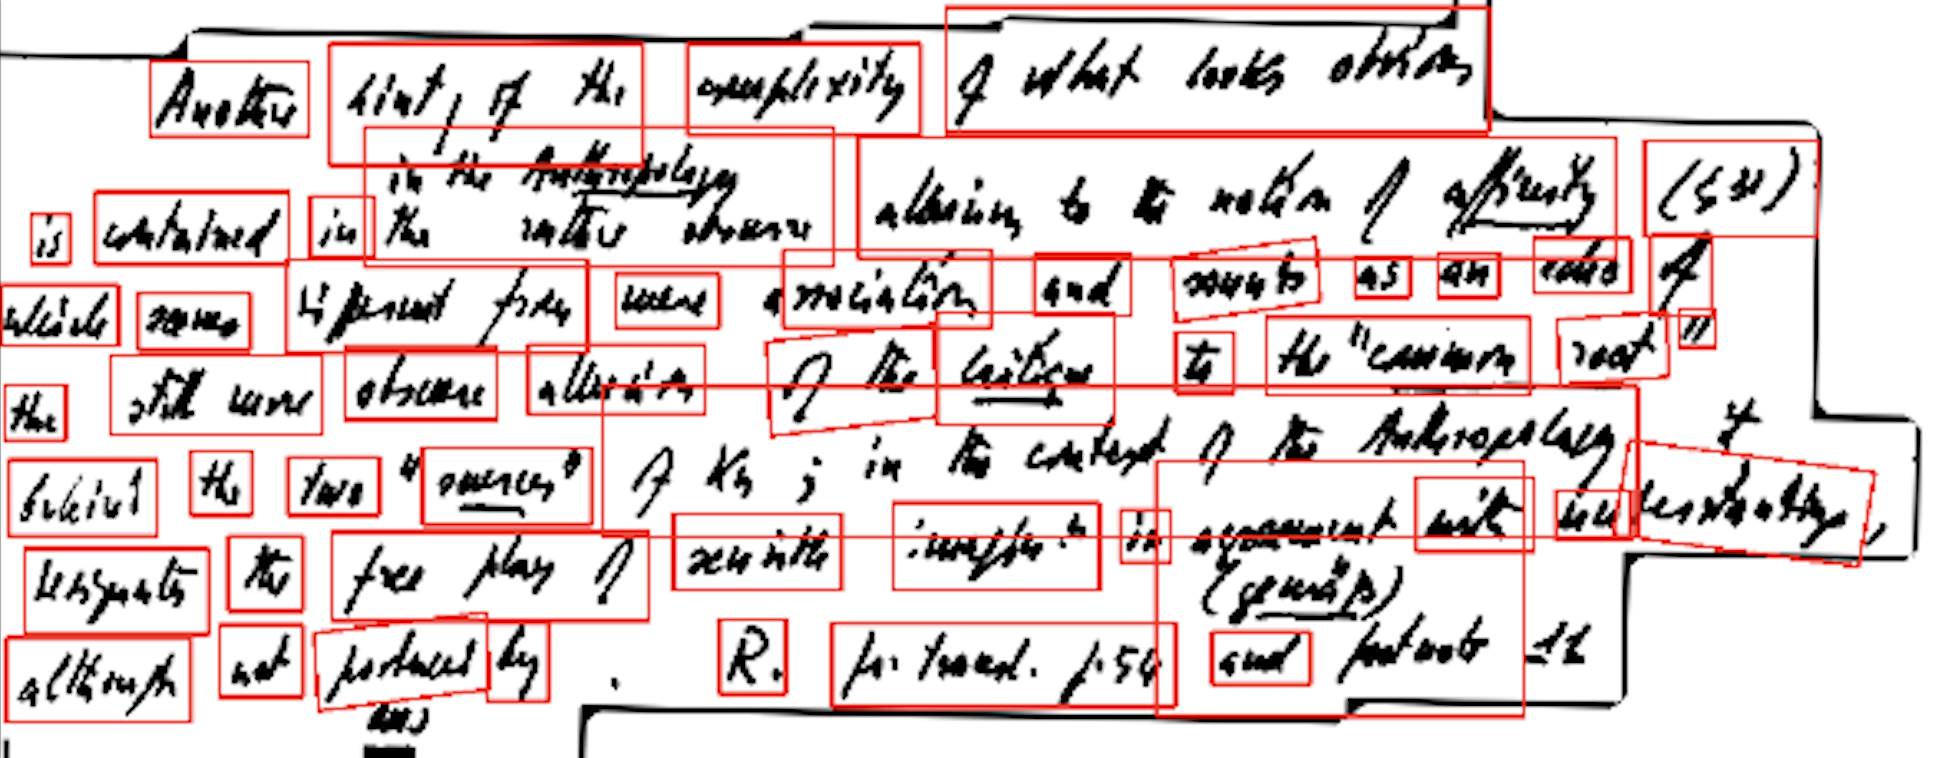 Another hint, of the complexity of what looks obvious
in the Anthropology
is contained in the rather obscure allusion to the notion of affinity (§31)
which seems different from mere association and sounds as an echo of
the still more obscure allusion of the Critique to the "common root"
behind the two "sources" of Kn ; in the context of the Anthropology it
designates the free play of sensible imagin." in agreement with understanding,
(gemäß)
although not produced by . R. fr. transl. p. 54 and footnote 11
aus